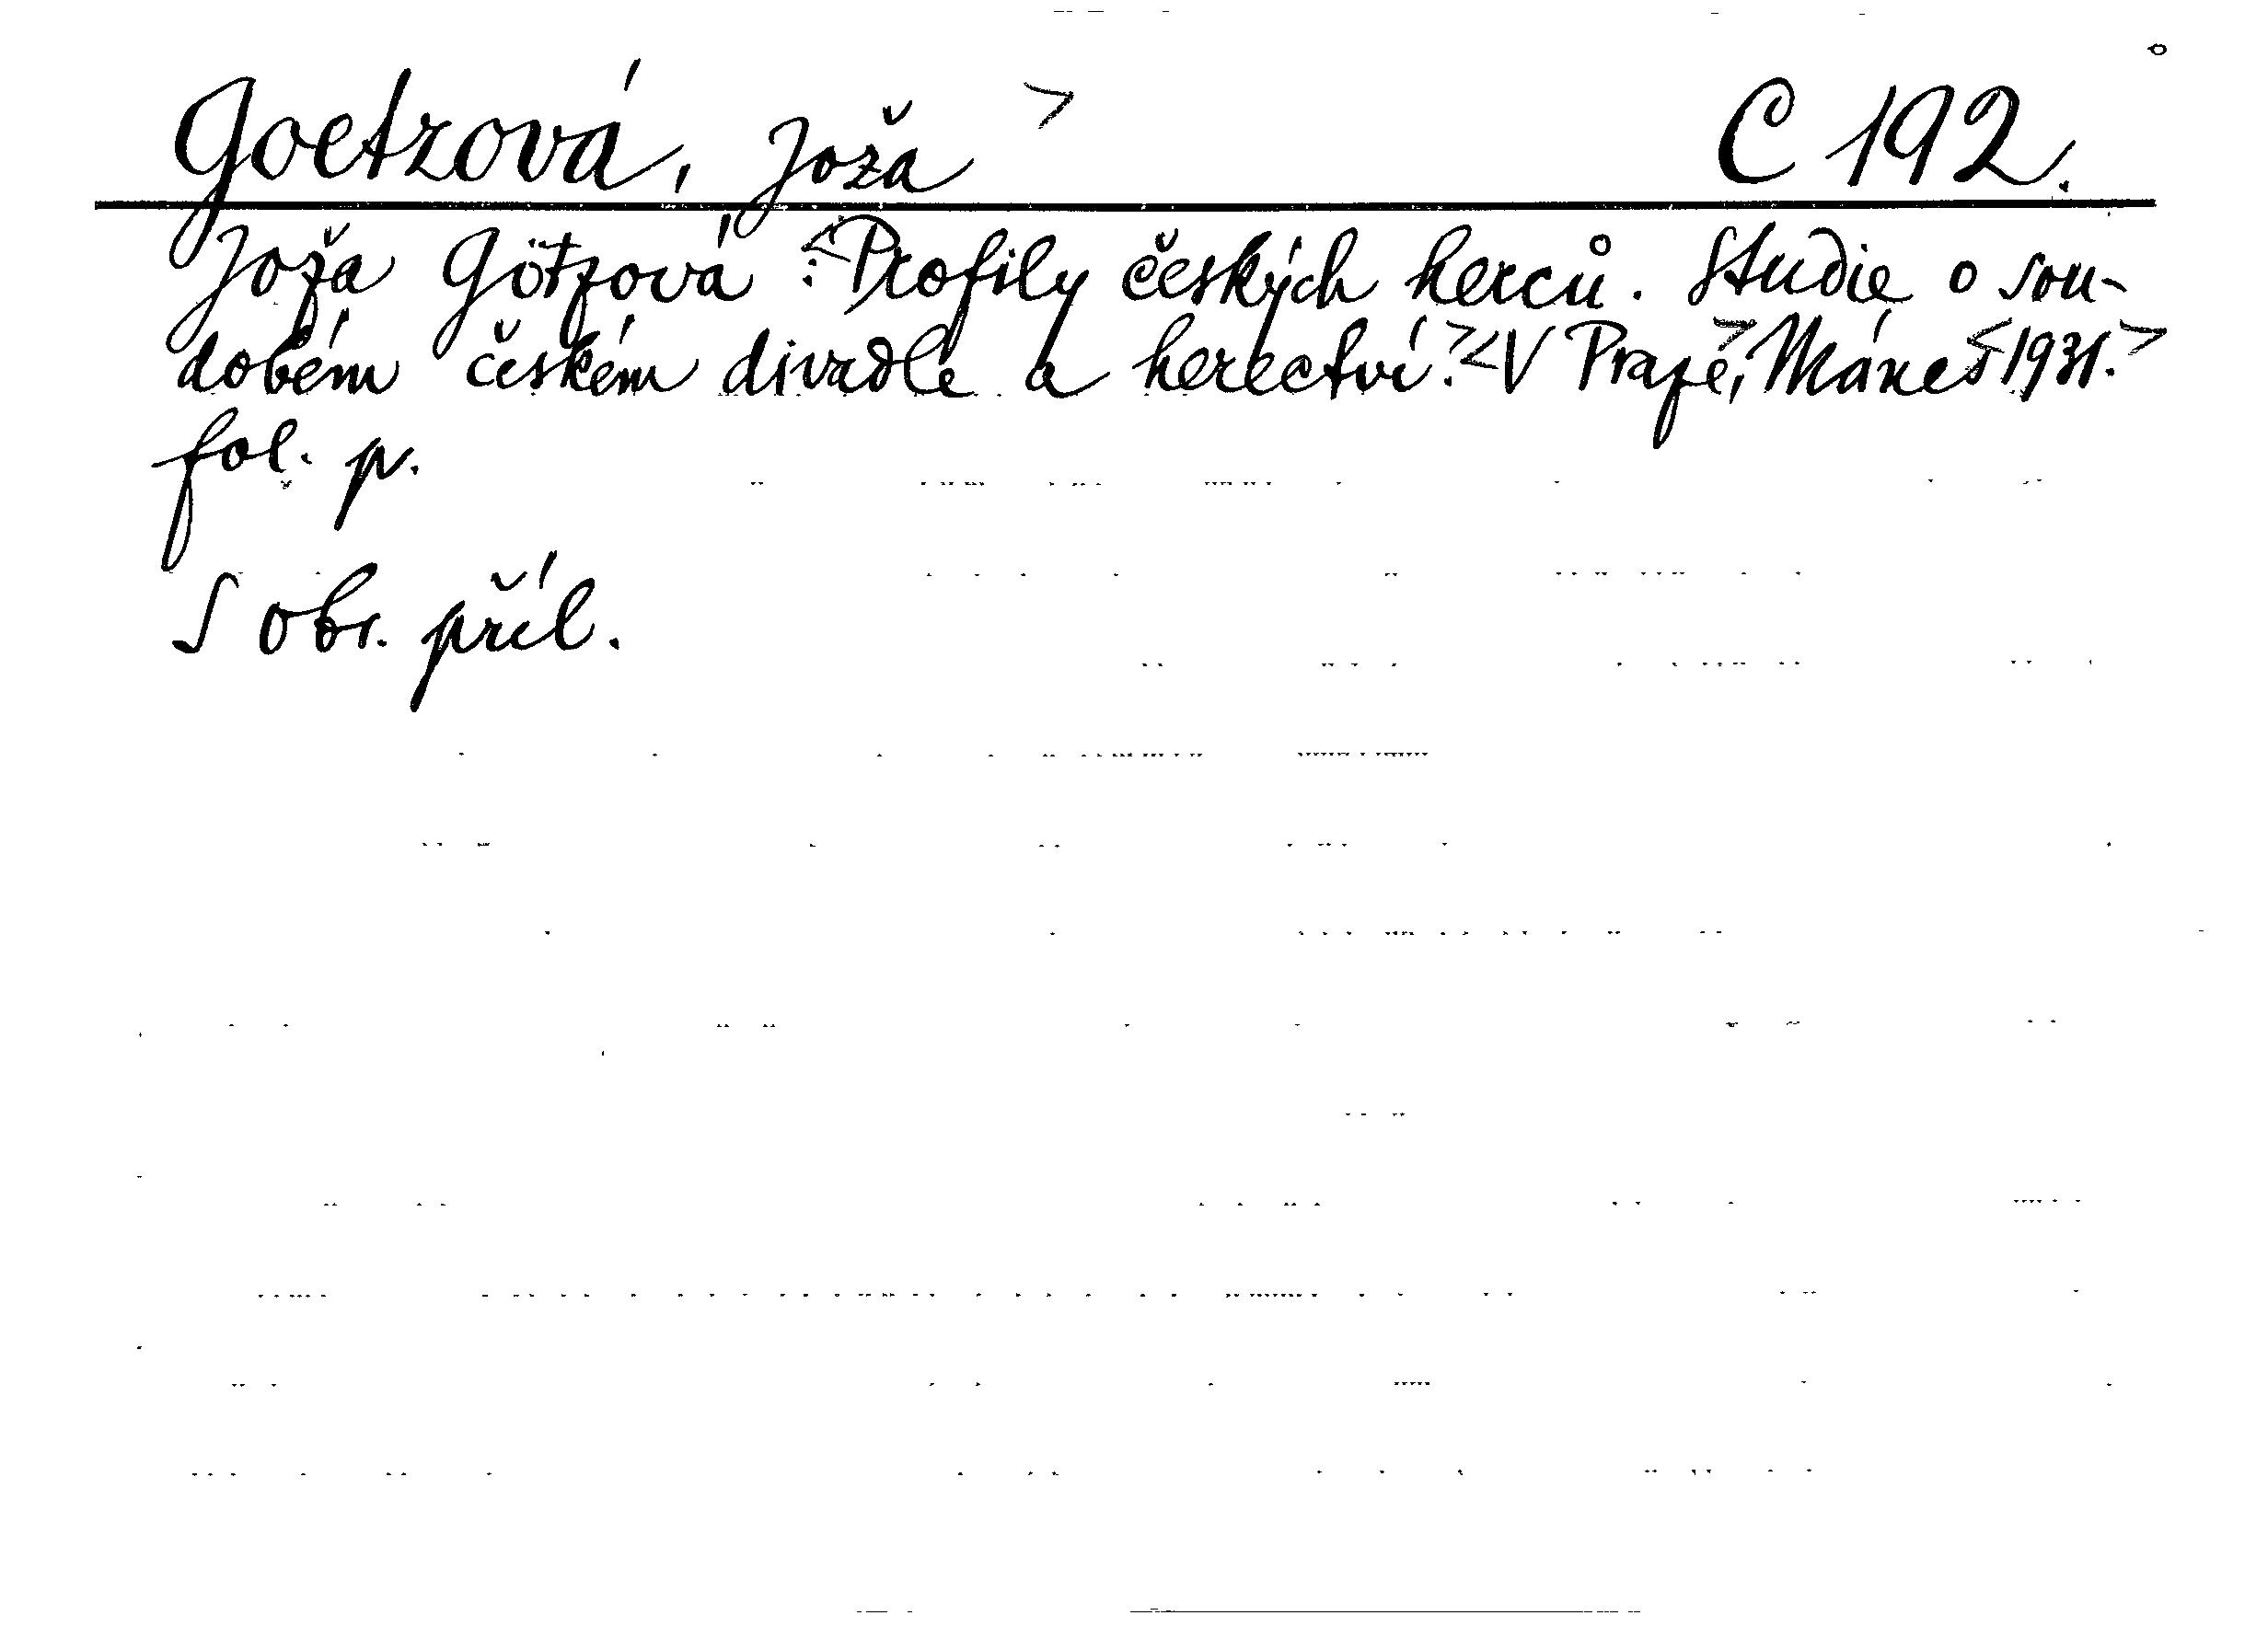 Goetzová, Joža > C 192.
Joža Götzová: <Profily českých herců. Studie o sou-
dobém českém divadle a herectví.> <V Praze>, Mánes <1931.>
fol. p.
S obr. příl.